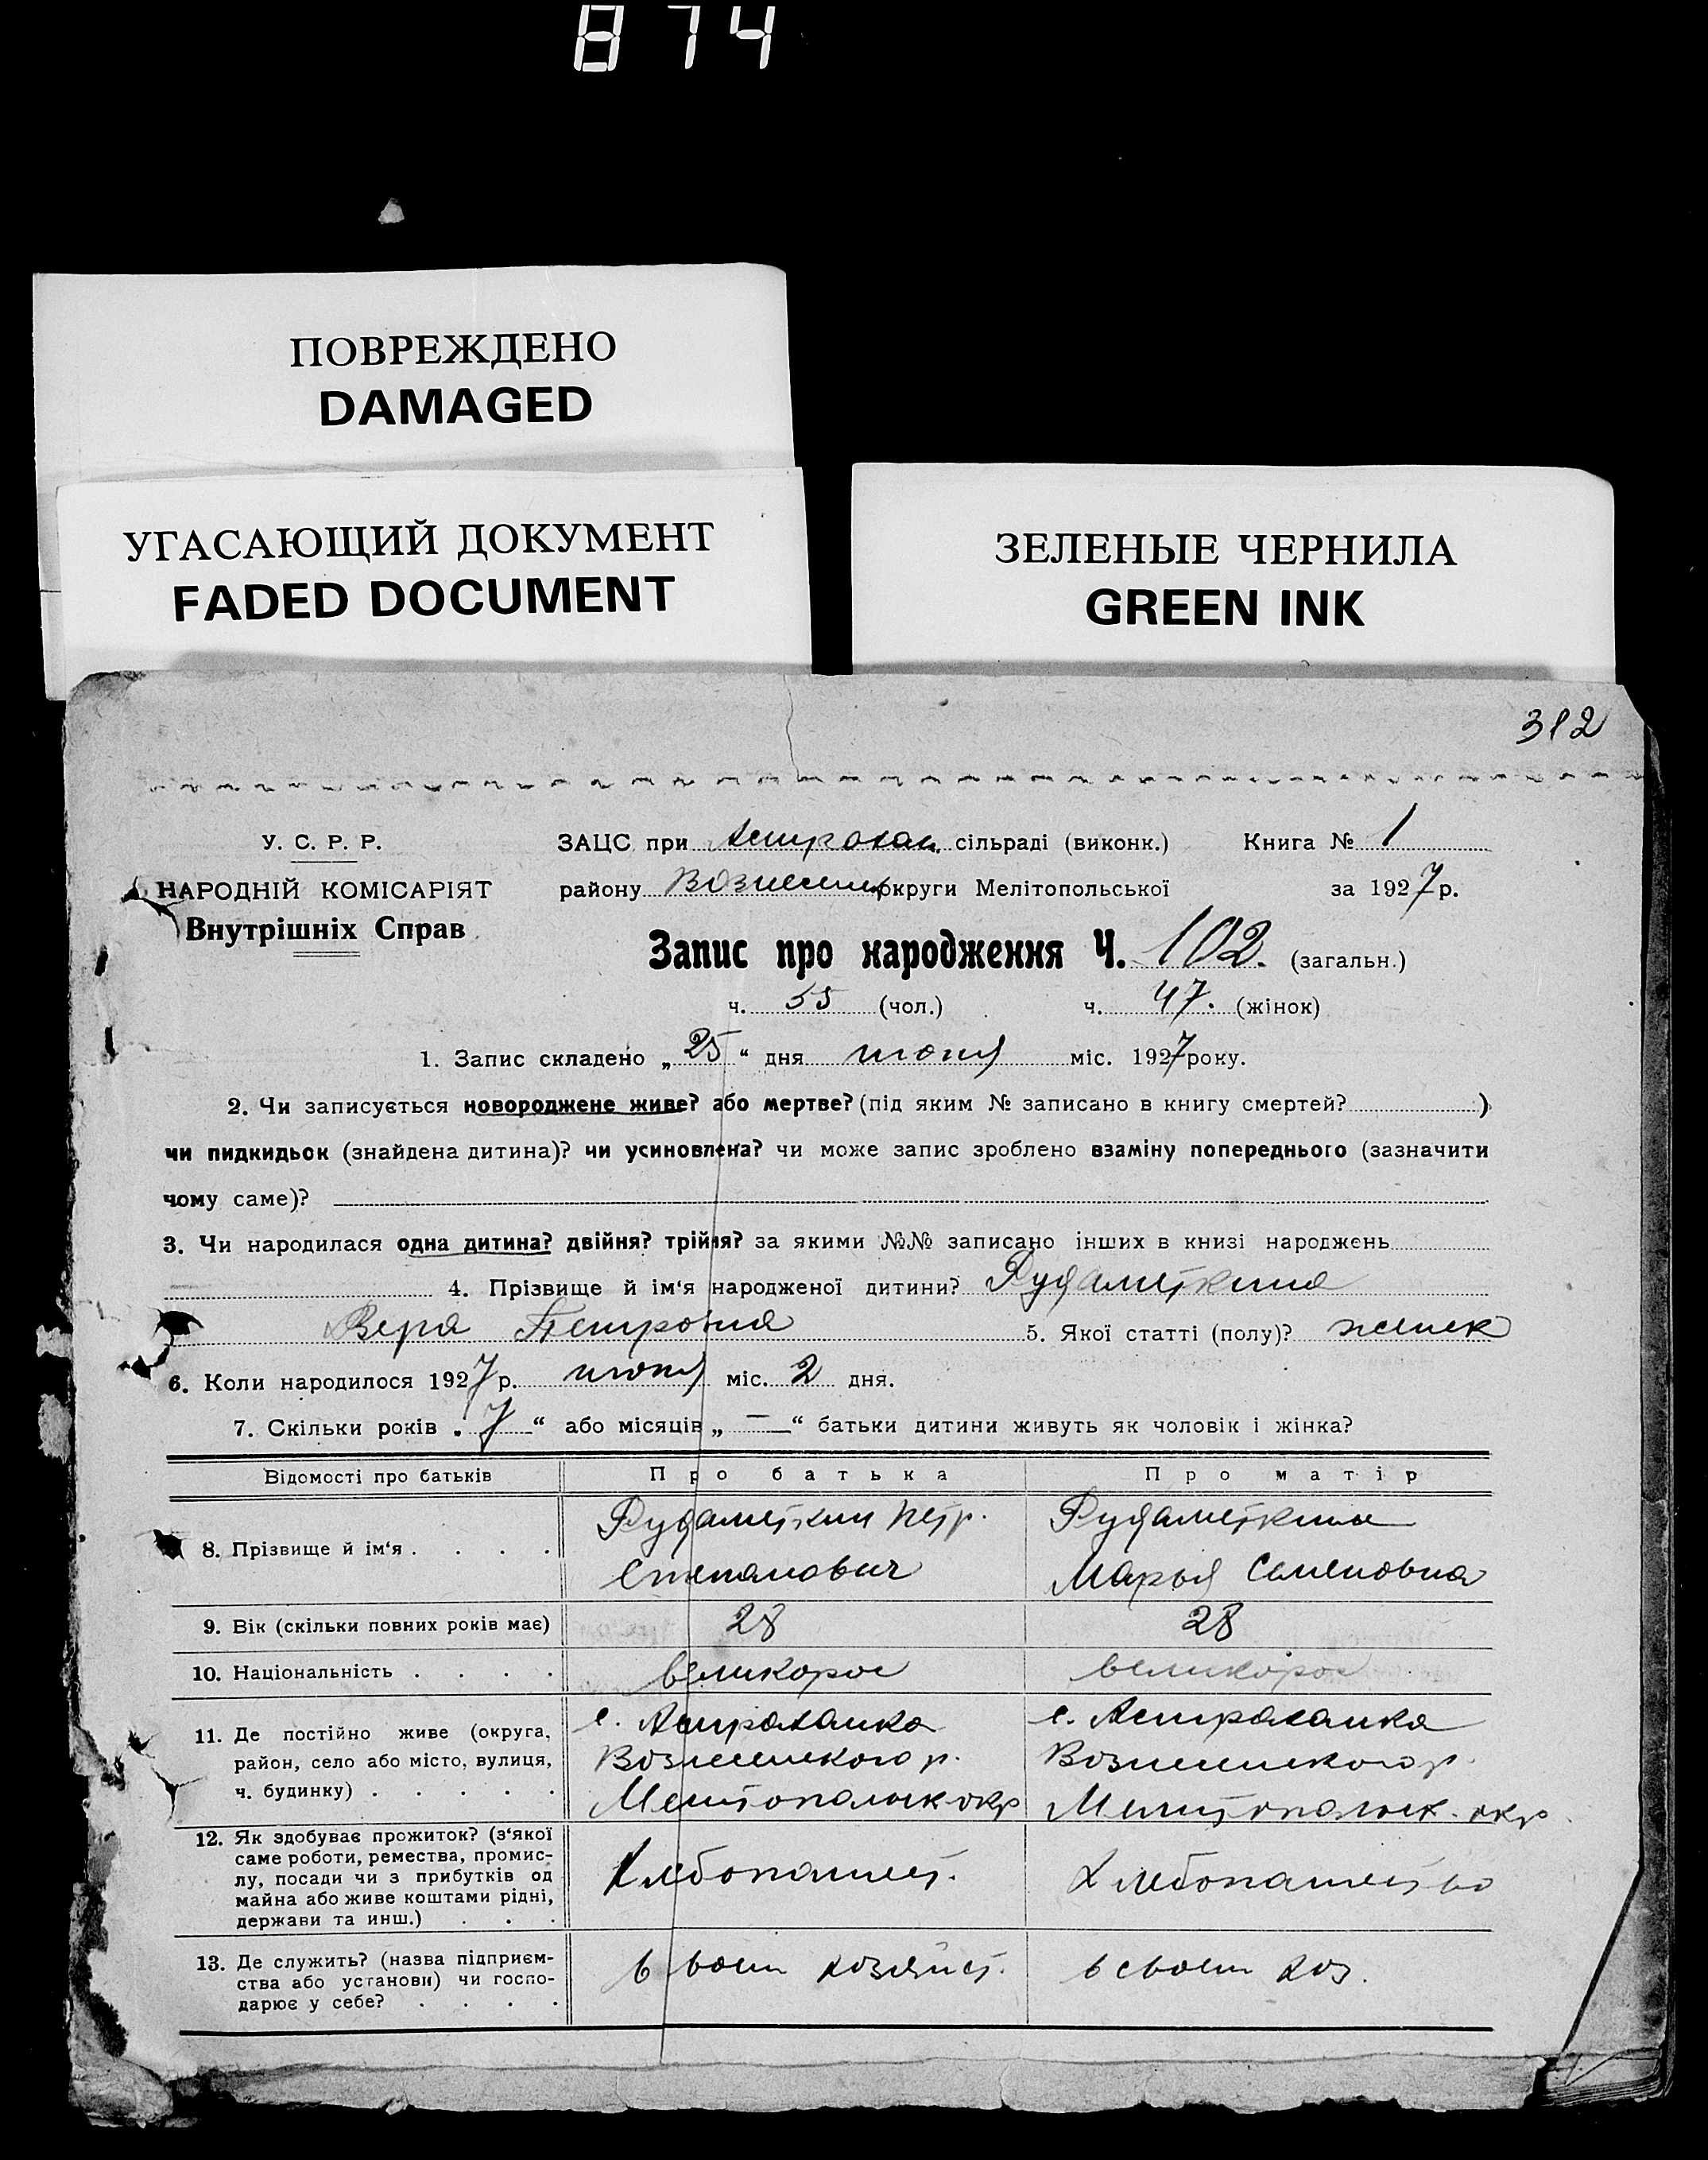 874
ПОВРЕЖДЕНО
DAMAGED
УГАСАЮЩИЙ ДОКУМЕНТ
FADED DOCUMENT
ЗЕЛЕНЫЕ ЧЕРНИЛА
GREEN INK
312
У. С. Р. Р.
НАРОДНІЙ КОМІСАРІЯТ
Внутрішніх Справ
ЗАЦС при Астрахан. сільраді (виконк.) Книга № 1
району Вознесенк округи Мелітопольської за 1927 р.
Запис про народження Ч. 102. (загальн.)
ч. 55 (чол.) ч. 47. (жінок)
1. Запис складено „ 25 “ дня июня міс. 1927 року.
2. Чи записується новороджене живе? або мертве? (під яким № записано в книгу смертей? )
чи пидкидьок (знайдена дитина)? чи усиновлена? чи може запис зроблено взаміну попереднього (зазначити
чому саме)?
3. Чи народилася одна дитина? двійня? трійня? за якими №№ записано інших в книзі народжень
4. Прізвище й ім‘я народженої дитини? Рудаметкина
Вера Петровна 5. Якої статті (полу)? женск
6. Коли народилося 1927 р. июня міс. 2 дня.
7. Скільки років „ 7 “ або місяців „ — “ батьки дитини живуть як чоловік і жінка?
Відомості про батьків Про батька Про матір
8. Прізвище й ім‘я . . . . Рудаметкин Петр. Степанович Рудаметкина Марья Семеновна
9. Вік (скільки повних років має) 28 28
10. Національність . . . . великорос великорос
11. Де постійно живе (округа, с. Астраханка с. Астраханка
район, село або місто, вулиця, Вознесенского р. Вознесенского р.
ч. будинку) . . . . . Мелитопольск окр Мелитопольск. окр.
12. Як здобуває прожиток? (з‘якої
саме роботи, ремества, промис-
лу, посади чи з прибутків од Хлебопашест. Хлебопашество
майна або живе коштами рідні,
держави та инш.) . . .
13. Де служить? (назва підприєм- в своем хозяйст. в своем хоз.
ства або установи) чи госпо-
дарює у себе? . . . .